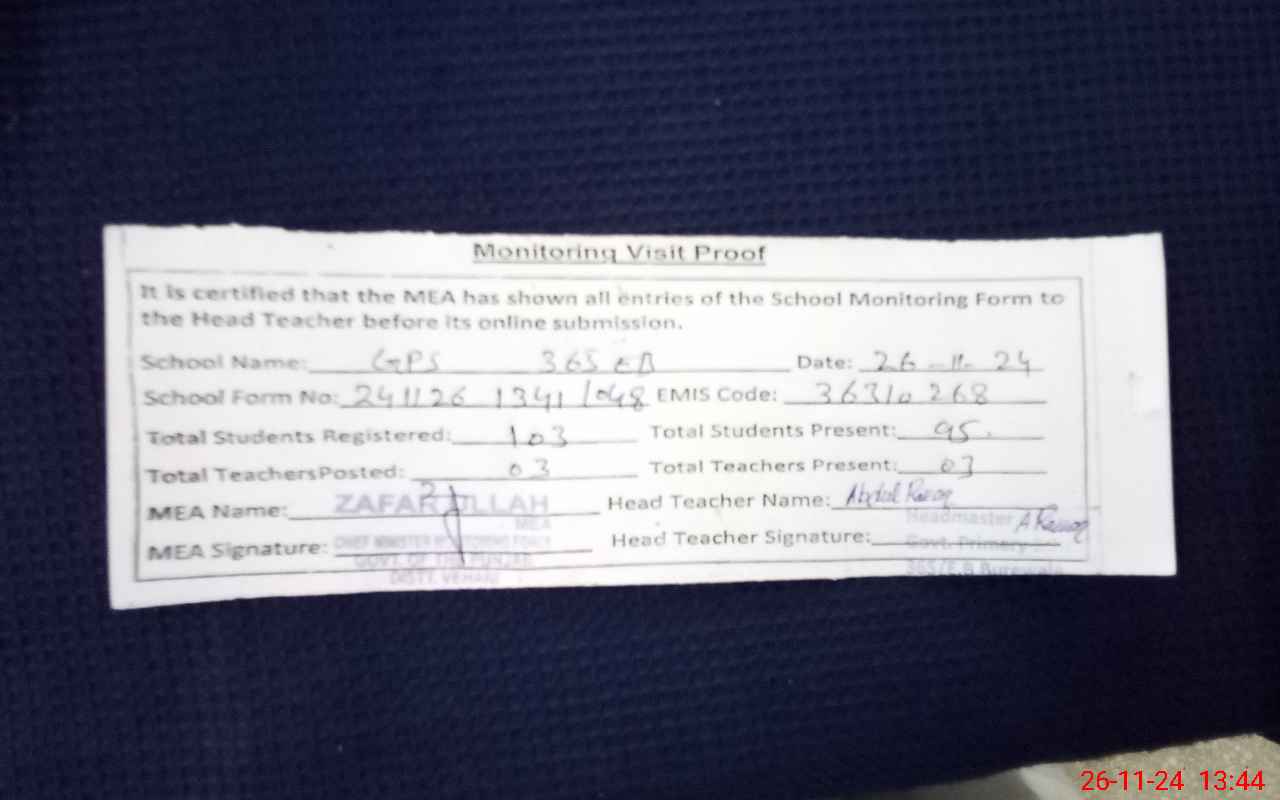 Monitoring Visit Proof
It is certified that the MEA has shown all entries of the School Monitoring Form to
the Head Teacher before its online submission.
School Name: GPS 365 EB Date: 26-11-24
School Form No: 241126 1341 1048 EMIS Code: 36310268
Total Students Registered: 103 Total Students Present: 95.
Total TeachersPosted: 03 Total Teachers Present: 03
MEA Name: ZAFAR ULLAH Head Teacher Name: Abdul Razaq
MEA Headmaster A Razaq
MEA Signature: CHIEF MINISTER MONITORING FORCE Head Teacher Signature: Govt. Primary
GOVT. OF THE PUNJAB 365/E.B Burewala
DISTT. VEHARI
26-11-24 13:44